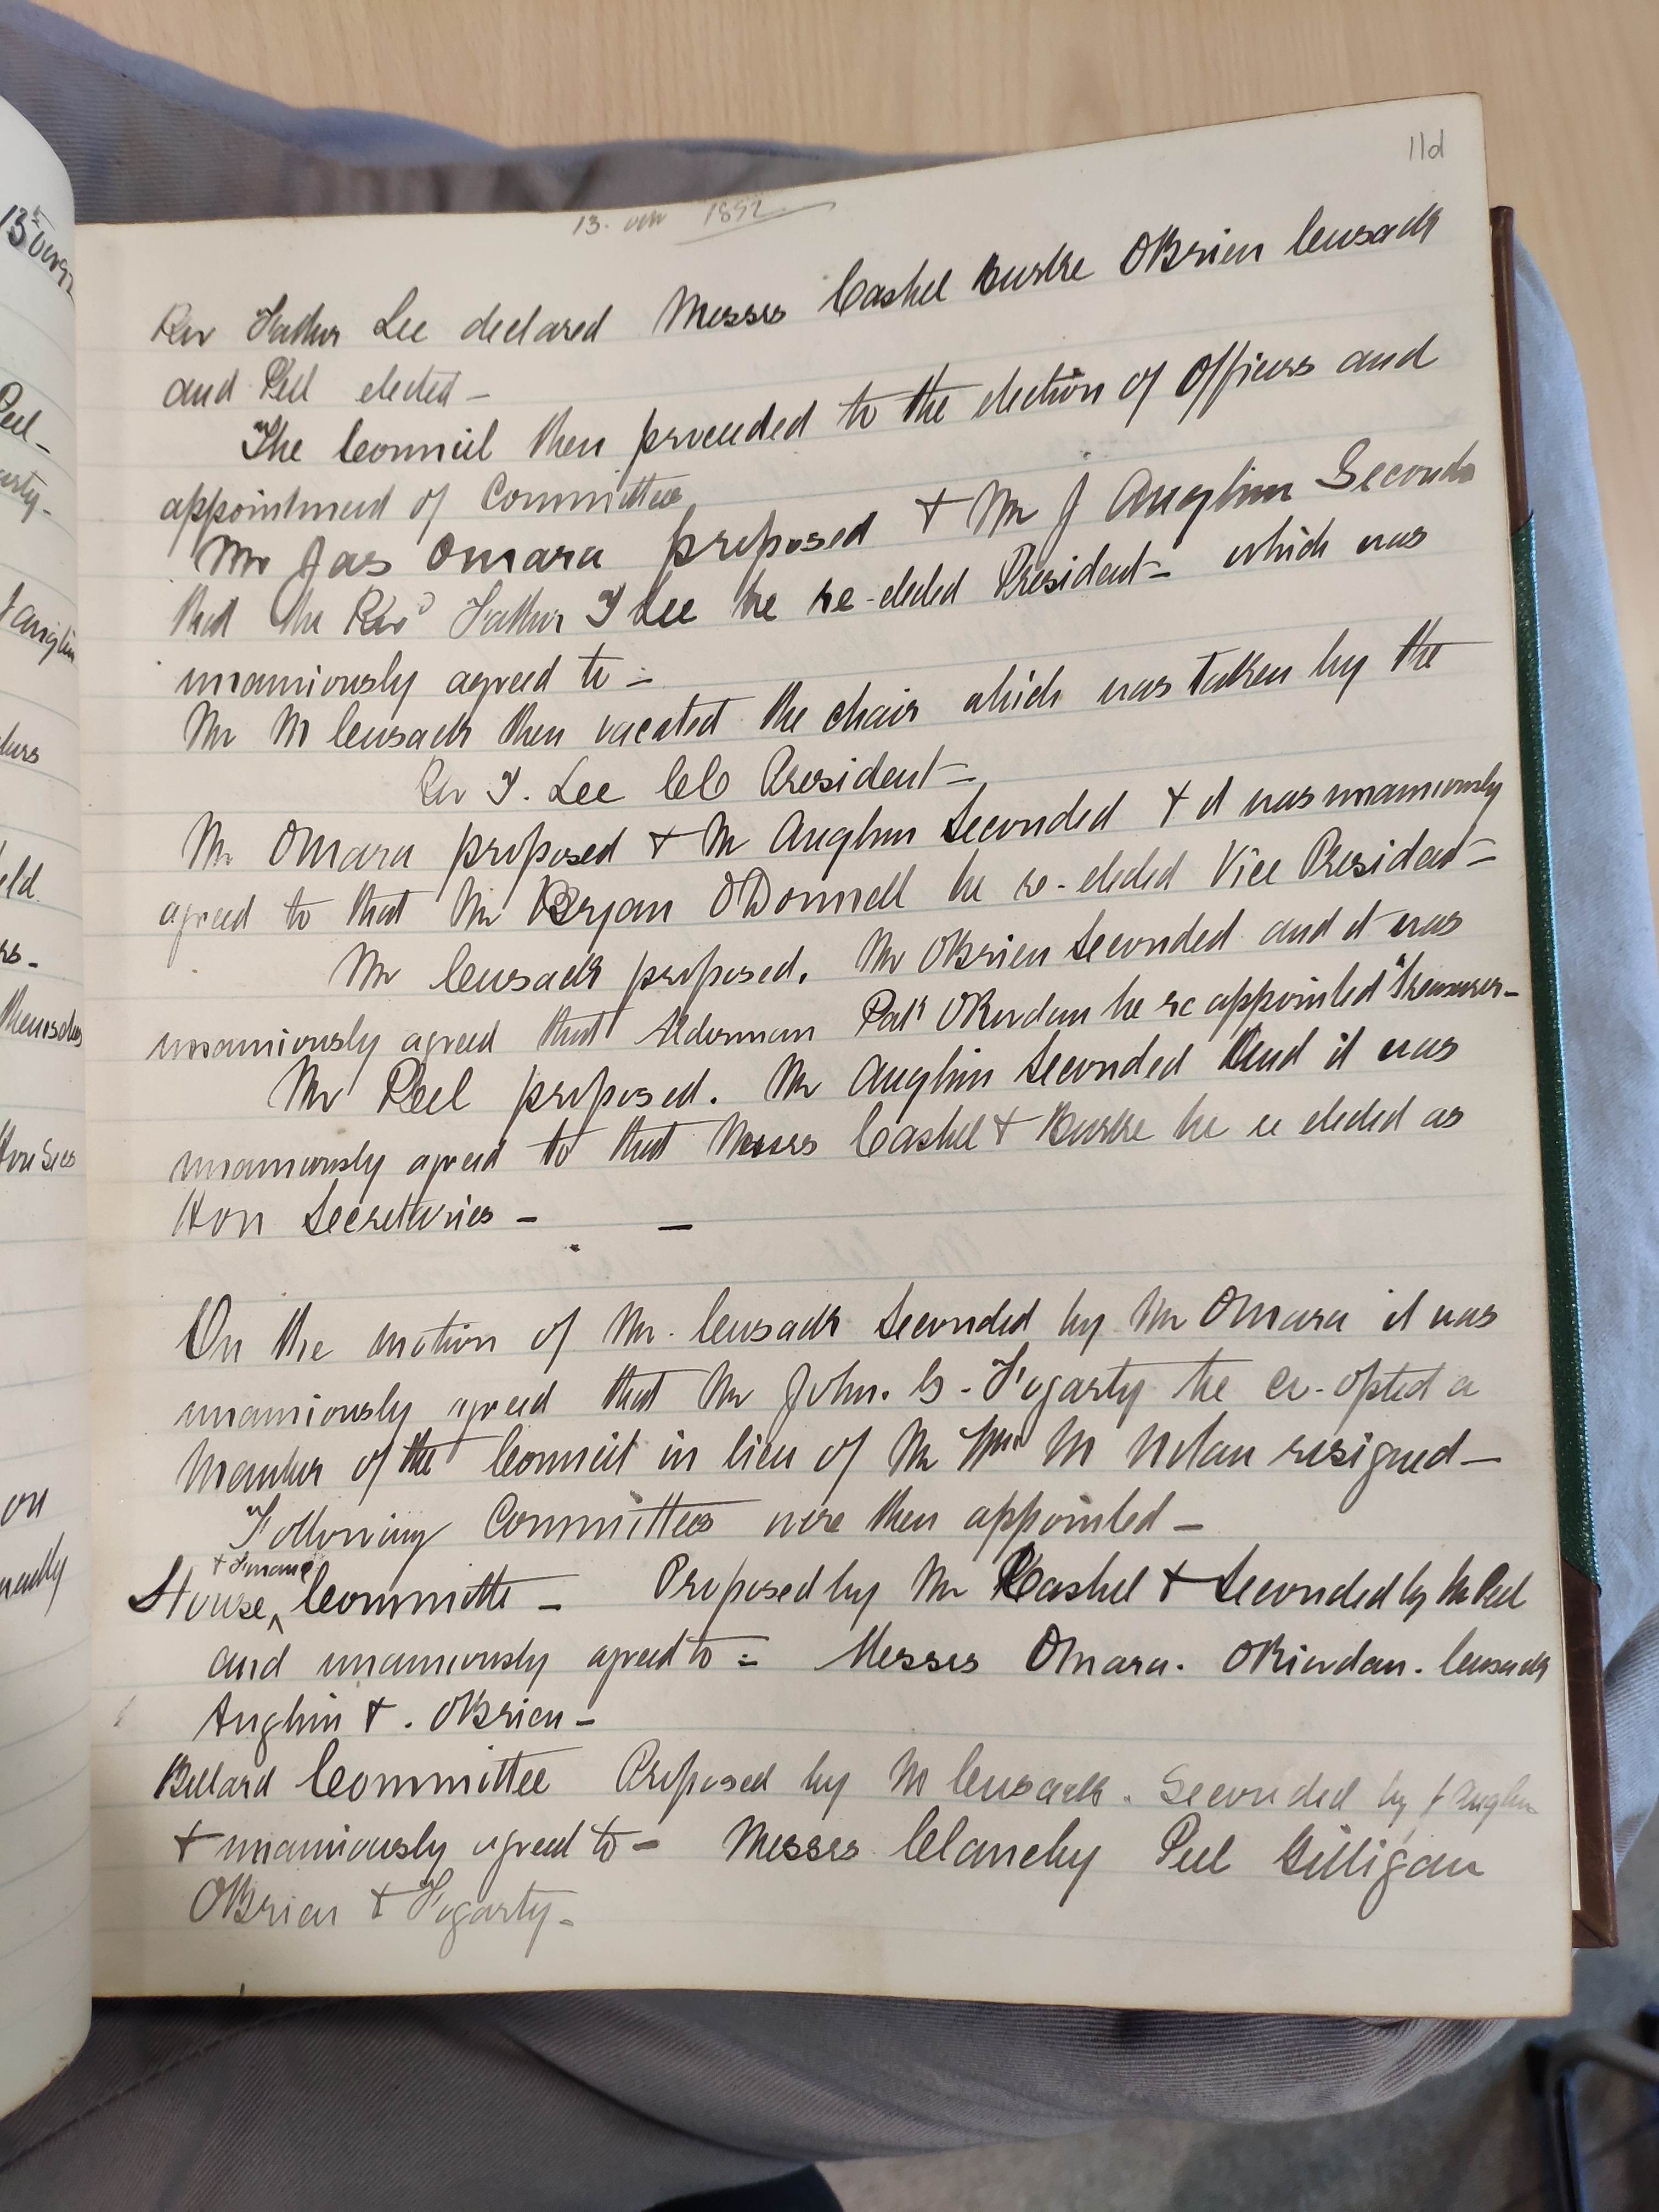 11d
13. 1892
Rev Father Lee declared Messrs Cashel Burke OBrien Cusack
and Peel elected -
The Council then proceeded to the election of Officers and
appointment of Committees
Mr Jas Omara proposed + Mr J Anglim Seconded
that the Revd Father T Lee be re-elected President - which was
unamiously agreed to -
Mr M Cusack then vacated the chair which was taken by the
Rev T. Lee CC President -
Mr OMara proposed + Mr Anglim Seconded + it was unamiously
agreed to that Mr Bryan ODonnell be re-elected Vice President -
Mr Cusack proposed. Mr OBrien Seconded and it was
unamiously agreed that Alderman Patk ORiordan be re appointed Treasurer -
Mr Peel proposed. Mr Anglim Seconded And it was
unamiously agreed to that Messrs Cashel + Burke be re elected as
Hon Secretaries - -
On the motion of Mr. Cusack Seconded by Mr OMara it was
unamiously agreed that Mr John. G. Fogarty be co-opted a
Member of the Council in lieu of Mr Wm M Nolan resigned -
Following Committees were then appointed -
House + Finance Committe - Proposed by Mr Cashel + Seconded by Mr Peel
and unamiously agreed to = Messrs OMara. ORiordan. Cusack
Anglim + . OBrien -
Billard Committee Proposed by M Cusack. Seconded by J Anglim
+ unamiously agreed to - Messrs Clanchy Peel Gilligan
OBrien + Fogarty -